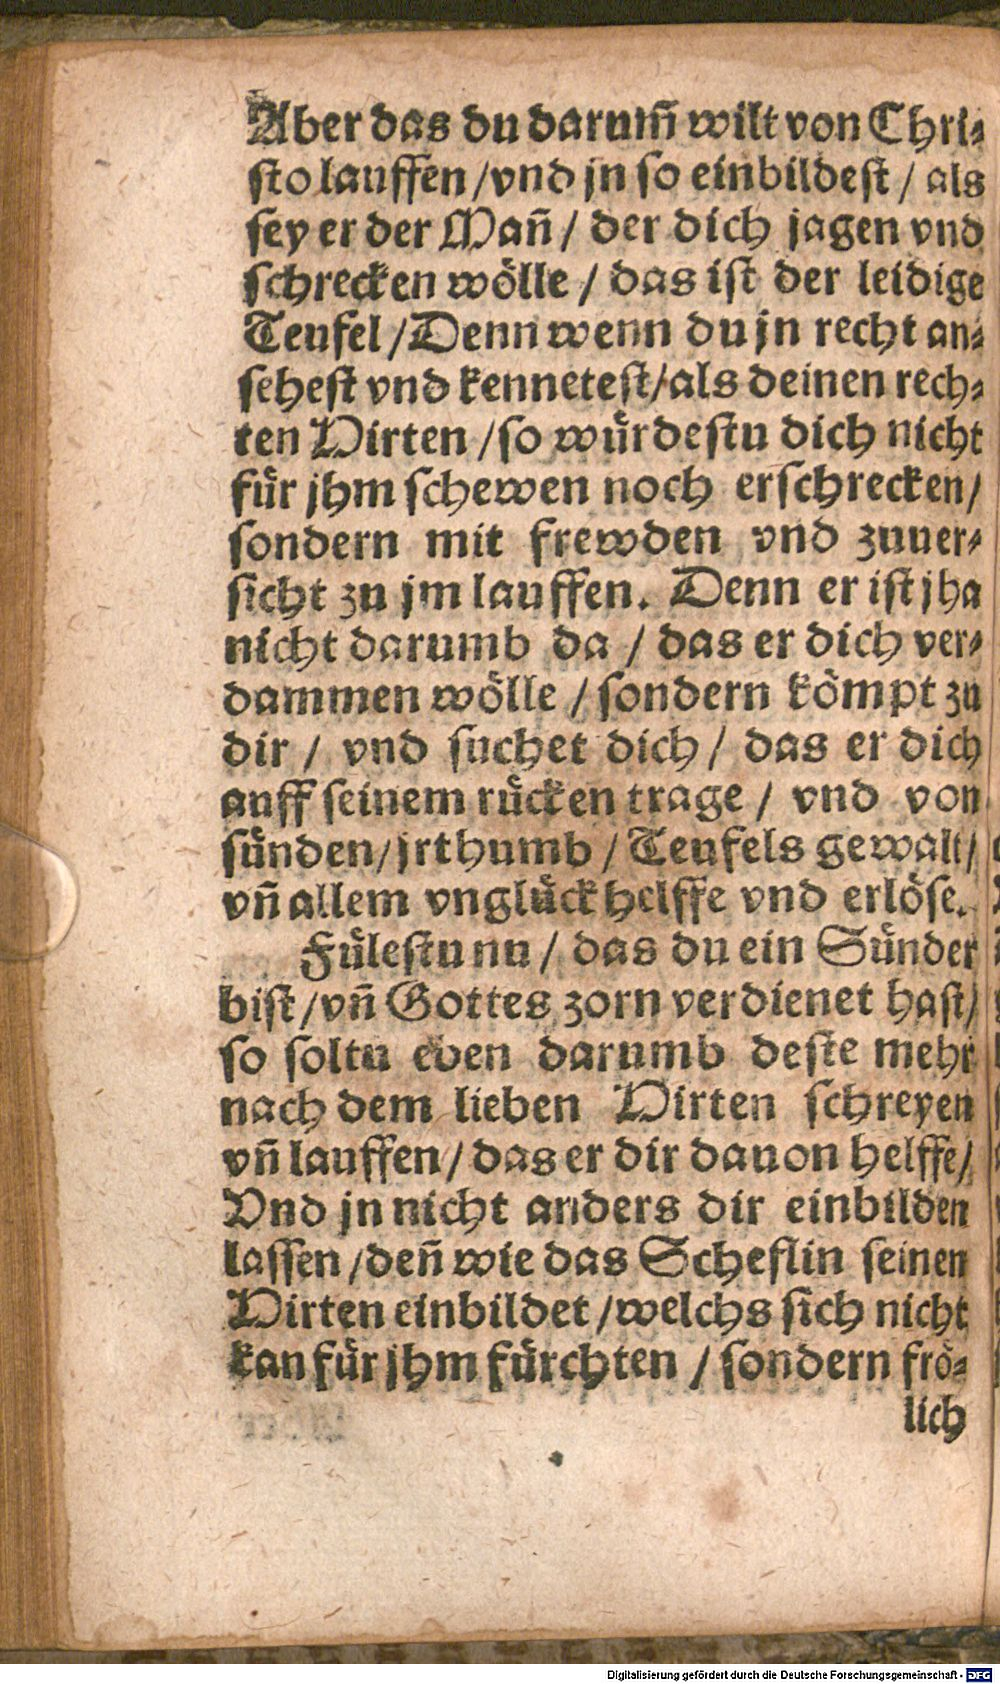 Aber das du darum̃ wilt von Chri⸗
sto lauffen /vnd jn so einbildest / als
sey er der Mañ / der dich jagen vnd
schrecken wölle / das ist der leidige
Teufel /Denn wenn du jn recht an⸗
sehest vnd kennetest/als deinen rech⸗
ten Hirten /so würdestu dich nicht
für jhm schewen noch erschrecken/
sondern mit frewden vnd zuuer⸗
sicht zu jm lauffen. Denn er ist jha
nicht darumb da / das er dich ver⸗
dammen wölle / sondern kömpt zu
dir / vnd suchet dich / das er dich
auff seinem rücken trage / vnd von
sünden/jrthumb / Teufels gewalt/
vñ allem vnglück helffe vnd erlöse.
Fülestu nu / das du ein Sünder
bist/vñ Gottes zorn verdienet hast/
so soltu eben darumb deste mehr
nach dem lieben Hirten schreyen
vñ lauffen/das er dir dauon helffe/
Vnd jn nicht anders dir einbilden
lassen /deñ wie das Scheflin seinen
Hirten einbildet /welchs sich nicht
kan für jhm fürchten / sondern frö⸗
lich
Digitalisierung gefördert durch die Deutsche Forschungsgemeinschaft - DFG